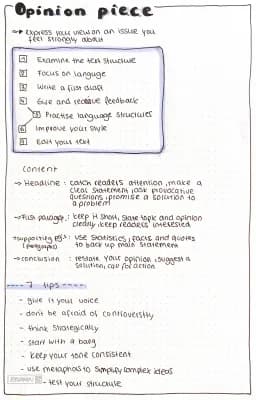 Opinion piece
Express your view on an issue you
feel strongly about
1 Examine the text structure
2 Focus on languge
3 Write a first draft
4 Give and receive feedback
5 Practise language structures
6 Improve your style
8 Edit your text
Content
→ Headline : catch readers attention, make a
clear statement, ask provocative
questions, promise a solution to
a problem
→ First paragraph : keep it short, state topic and opinion
clearly, keep readers interested
→ supporting : use statistics, facts and quotes
(paragraphs) to back up main statement
→ conclusion : restate your opinion, suggest a
solution, call for action
7 tips
- give it your voice
- don't be afraid of controversity
- think strategically
- start with a bang
- keep your tone consistent
- use metaphors to simplify complex ideas
- test your structure